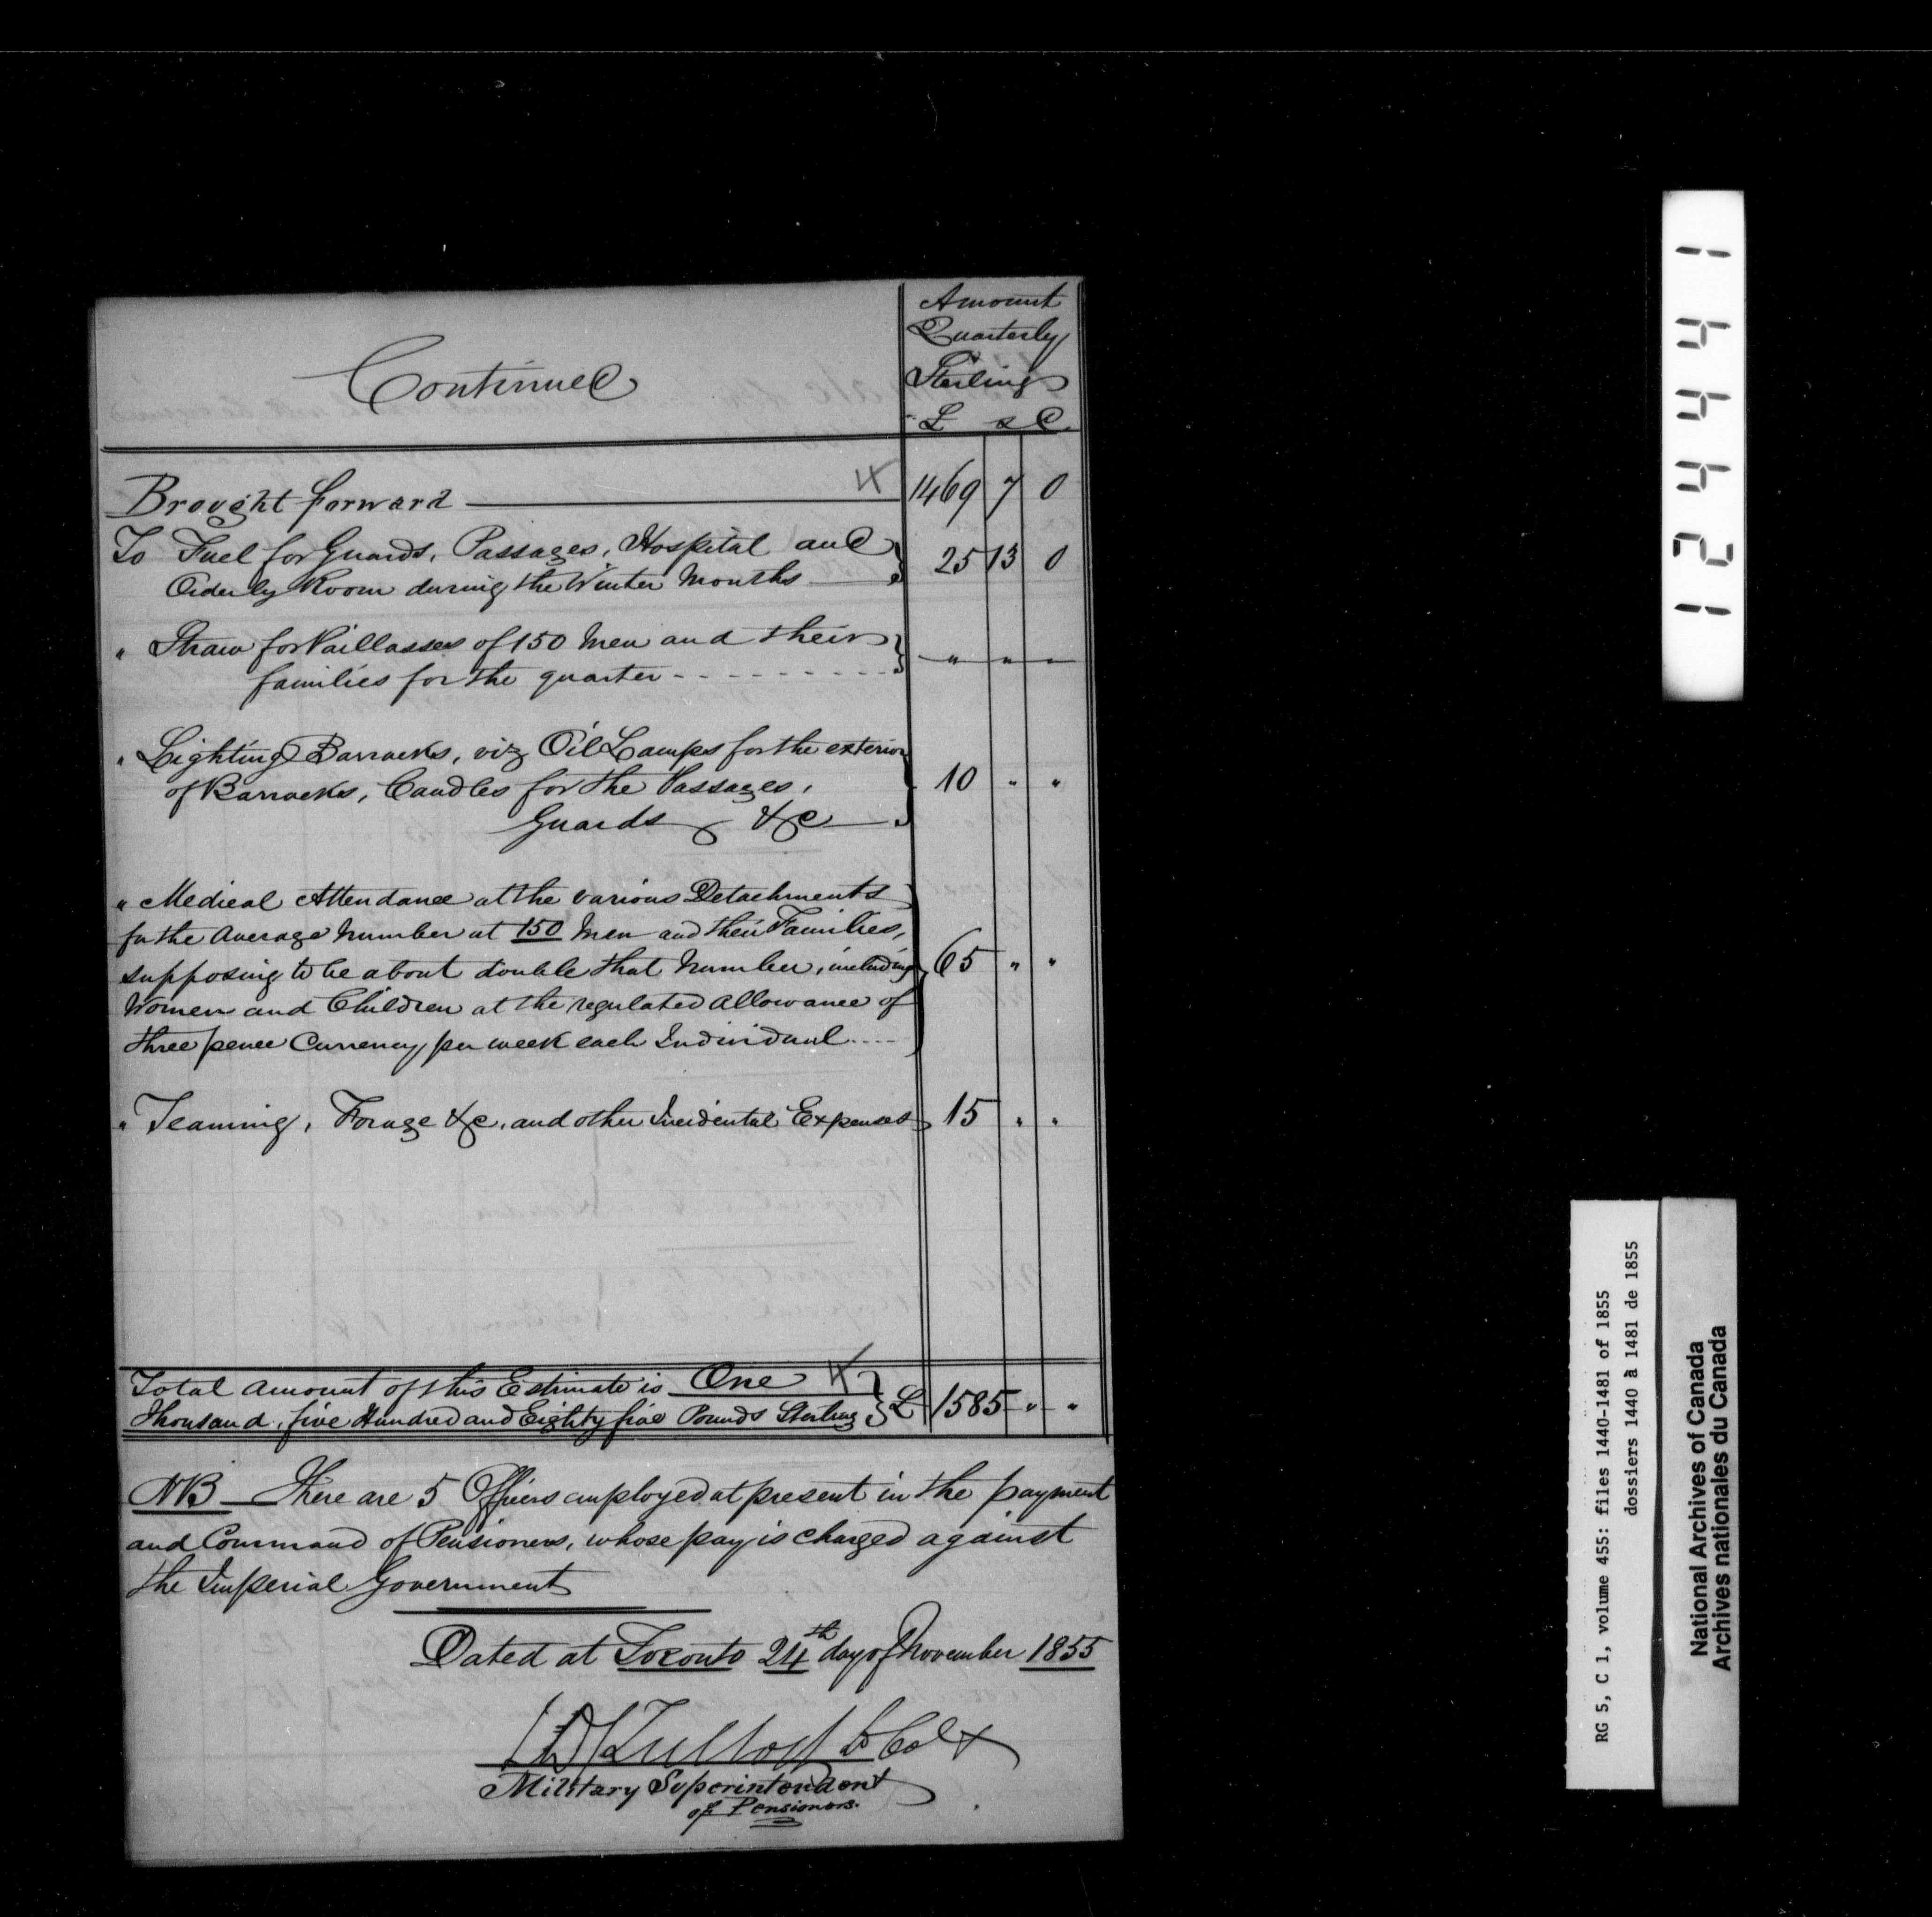 Continued
Amount
Quarterly
Sterling
£ s d
Brought forward 1469 7 0
To Fuel for Guards, Passages, Hospital and
Orderly Room during the Winter Months 25 13 0
" Straw for Paillasses of 150 Men and their
families for the quarter - - - - - - - - - - " " "
" Lighting Barracks, viz Oil Lamps for the exterior
of Barracks, Candles for the Passages,
Guards &c 10 " "
" Medical Attendance at the various Detachments
for the Average Number at 150 Men and their Families,
supposing to be about double that Number, including
Women and Children at the regulated allowance of
three pence Currency per week each Individual .... 65 " "
" Teaming, Forage &c, and other Incidental Expenses 15 " "
Total Amount of this Estimate is One
thousand, five Hundred and Eighty five Pounds Sterling £ 1585 " "
NB There are 5 Officers employed at present in the payment
and Command of Pensioners, whose pay is charged against
the Imperial Government
Dated at Toronto 24th day of November 1855
Tulloch Lt Col
Military Superintendent
of Pensioners.
124441
RG 5, C 1, volume 455: files 1440-1481 of 1855
dossiers 1440 à 1481 de 1855
National Archives of Canada
Archives nationales du Canada